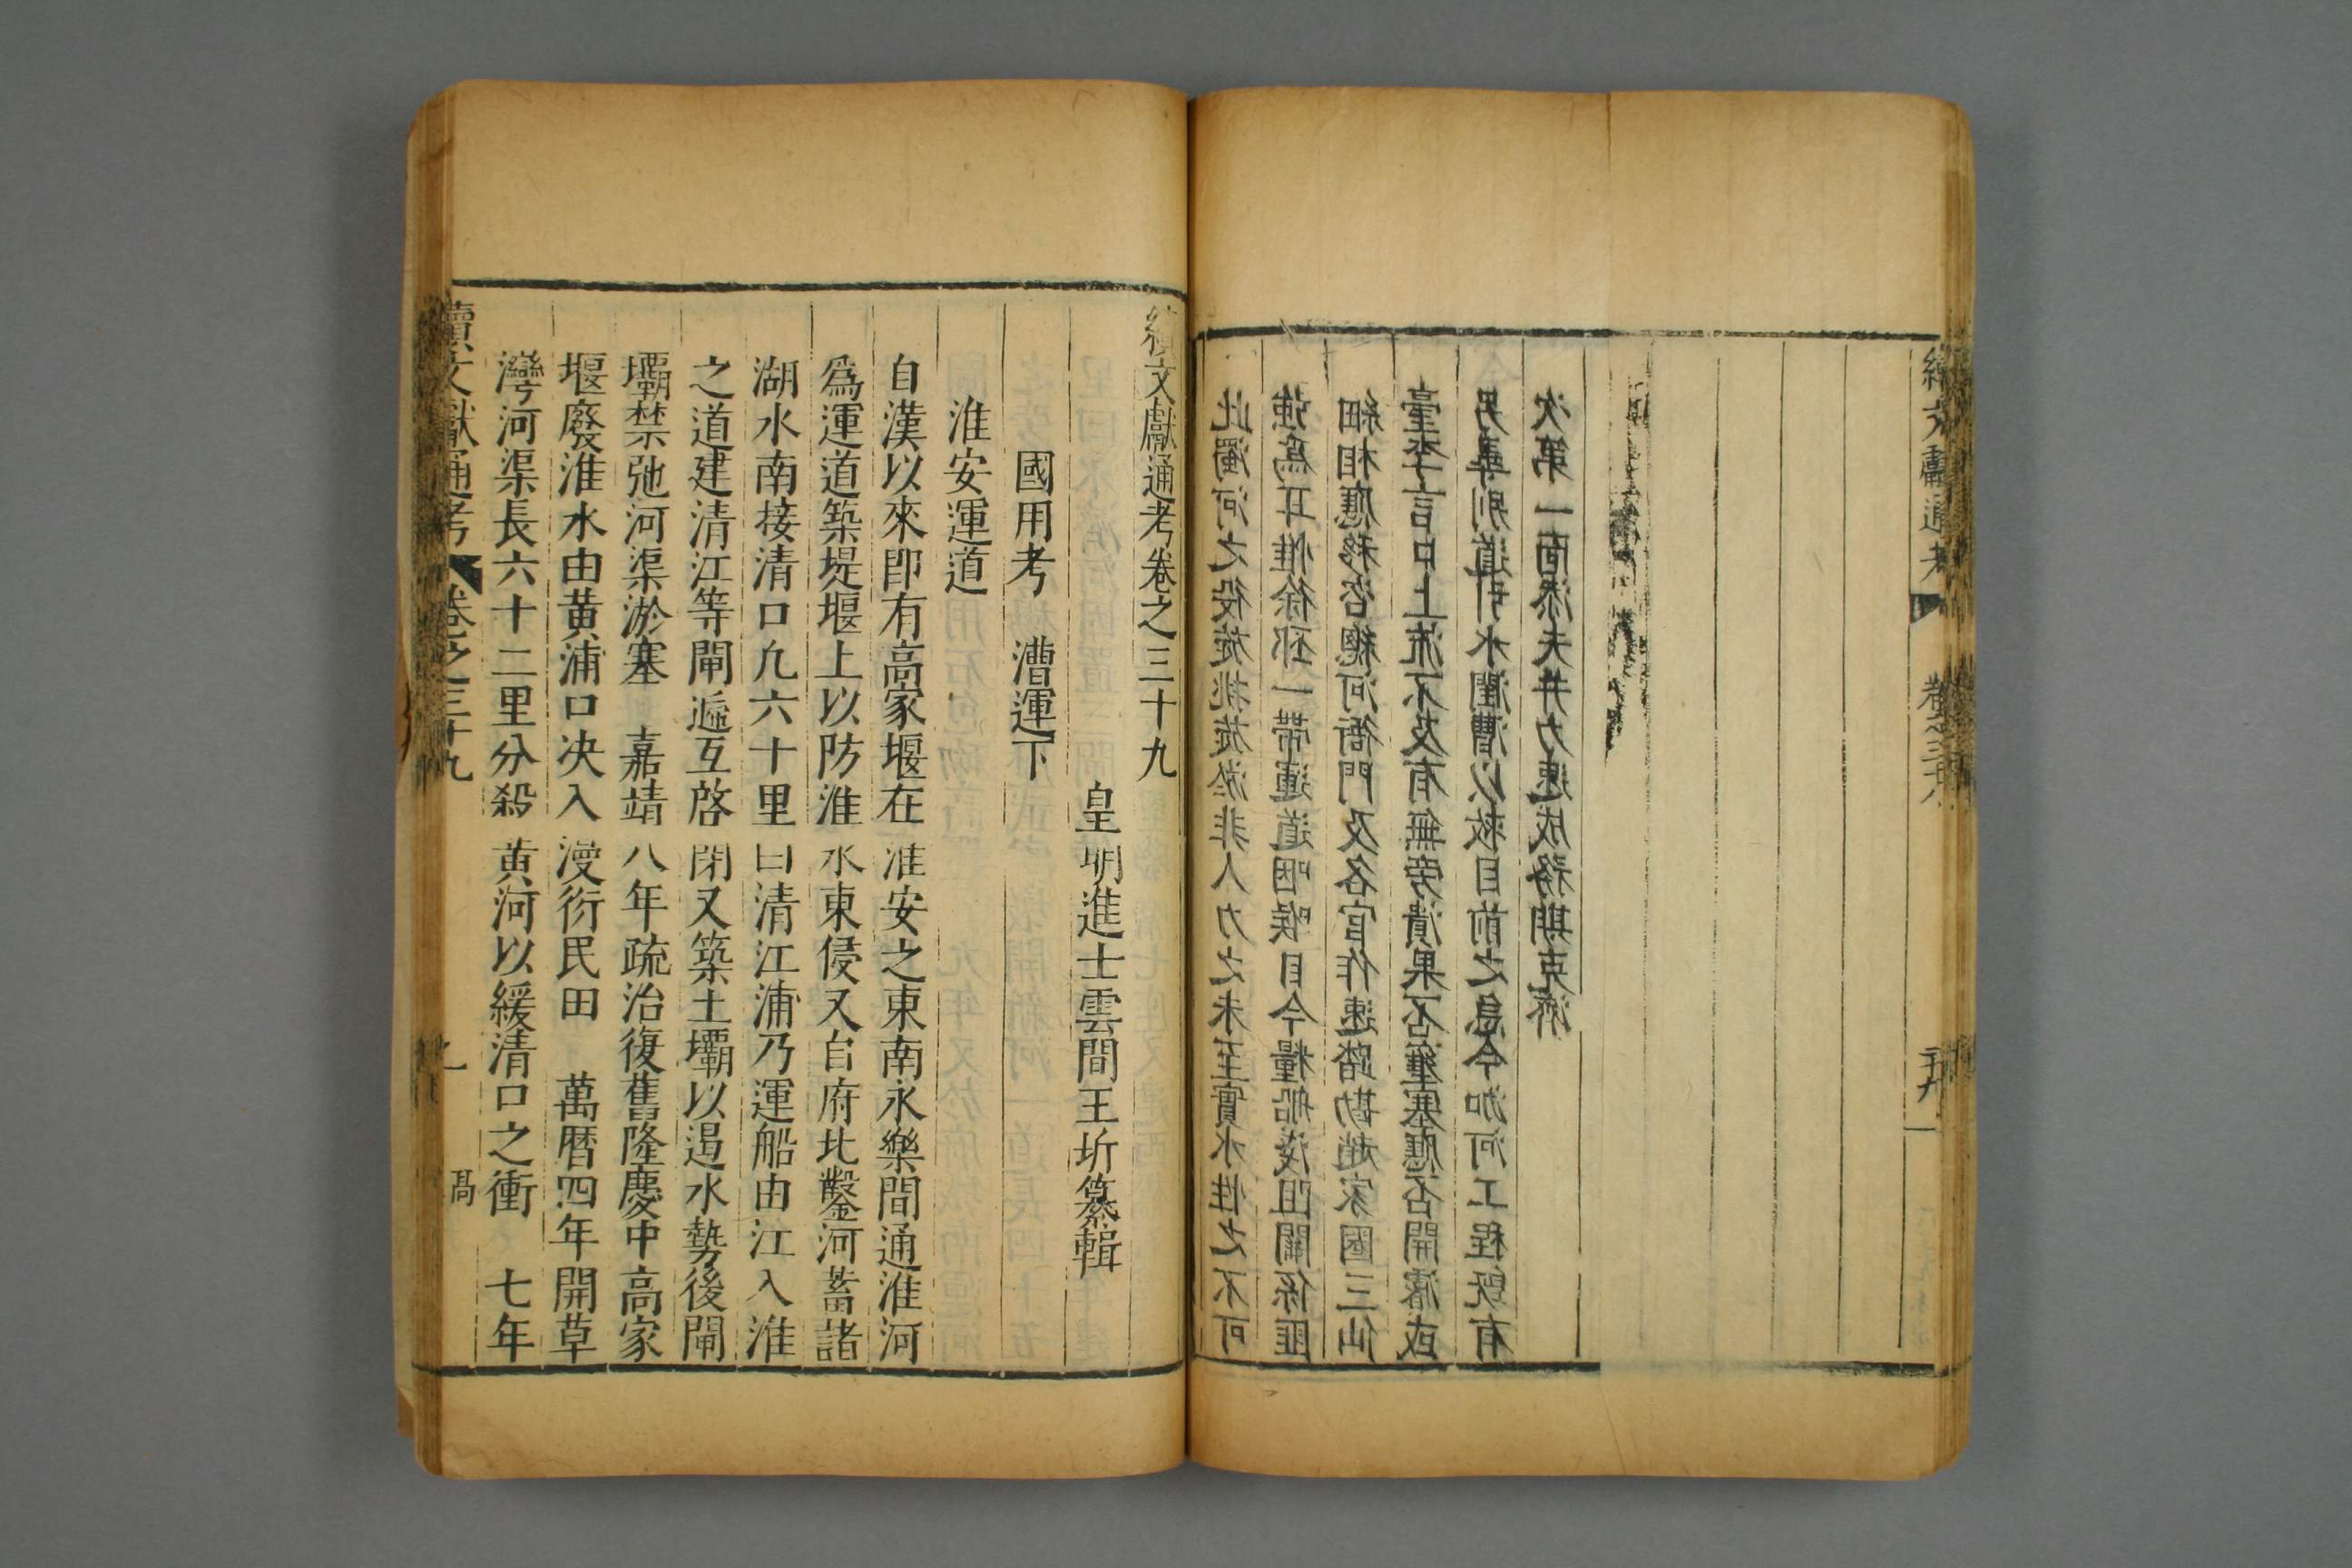 續文獻通考 卷之三十八
此濁河之役旋挑旋淤非人力之未至實水性之不可
強爲耳惟徐邳一帶運道咽喉目今糧船淺阻關係匪
細相應移咨總河衙門及各官作速踏勘趙家圈三仙
臺李言口上流不及有無旁潰果否壅塞應否開濬或
另尋別道引水濟漕以救目前之急今泇河工程旣有
次第一面添夫并力速成務期克濟
續文獻通考卷之三十九
皇明進士雲間王圻纂輯
國用考 漕運下
淮安運道
自漢以來卽有高家堰在淮安之東南永樂間通淮河
爲運道築堤堰上以防淮水東侵又自府北鑿河蓄諸
湖水南接清口凢六十里曰清江浦乃運船由江入淮
之道建清江等閘遞互啓閉又築土壩以遏水勢後閘
壩禁弛河渠淤塞 嘉靖八年疏治復舊隆慶中高家
堰廢淮水由黃浦口决入漫衍民田 萬曆四年開草
灣河渠長六十二里分殺黃河以緩清口之衝 七年
續文獻通考 卷之三十九 一 髙